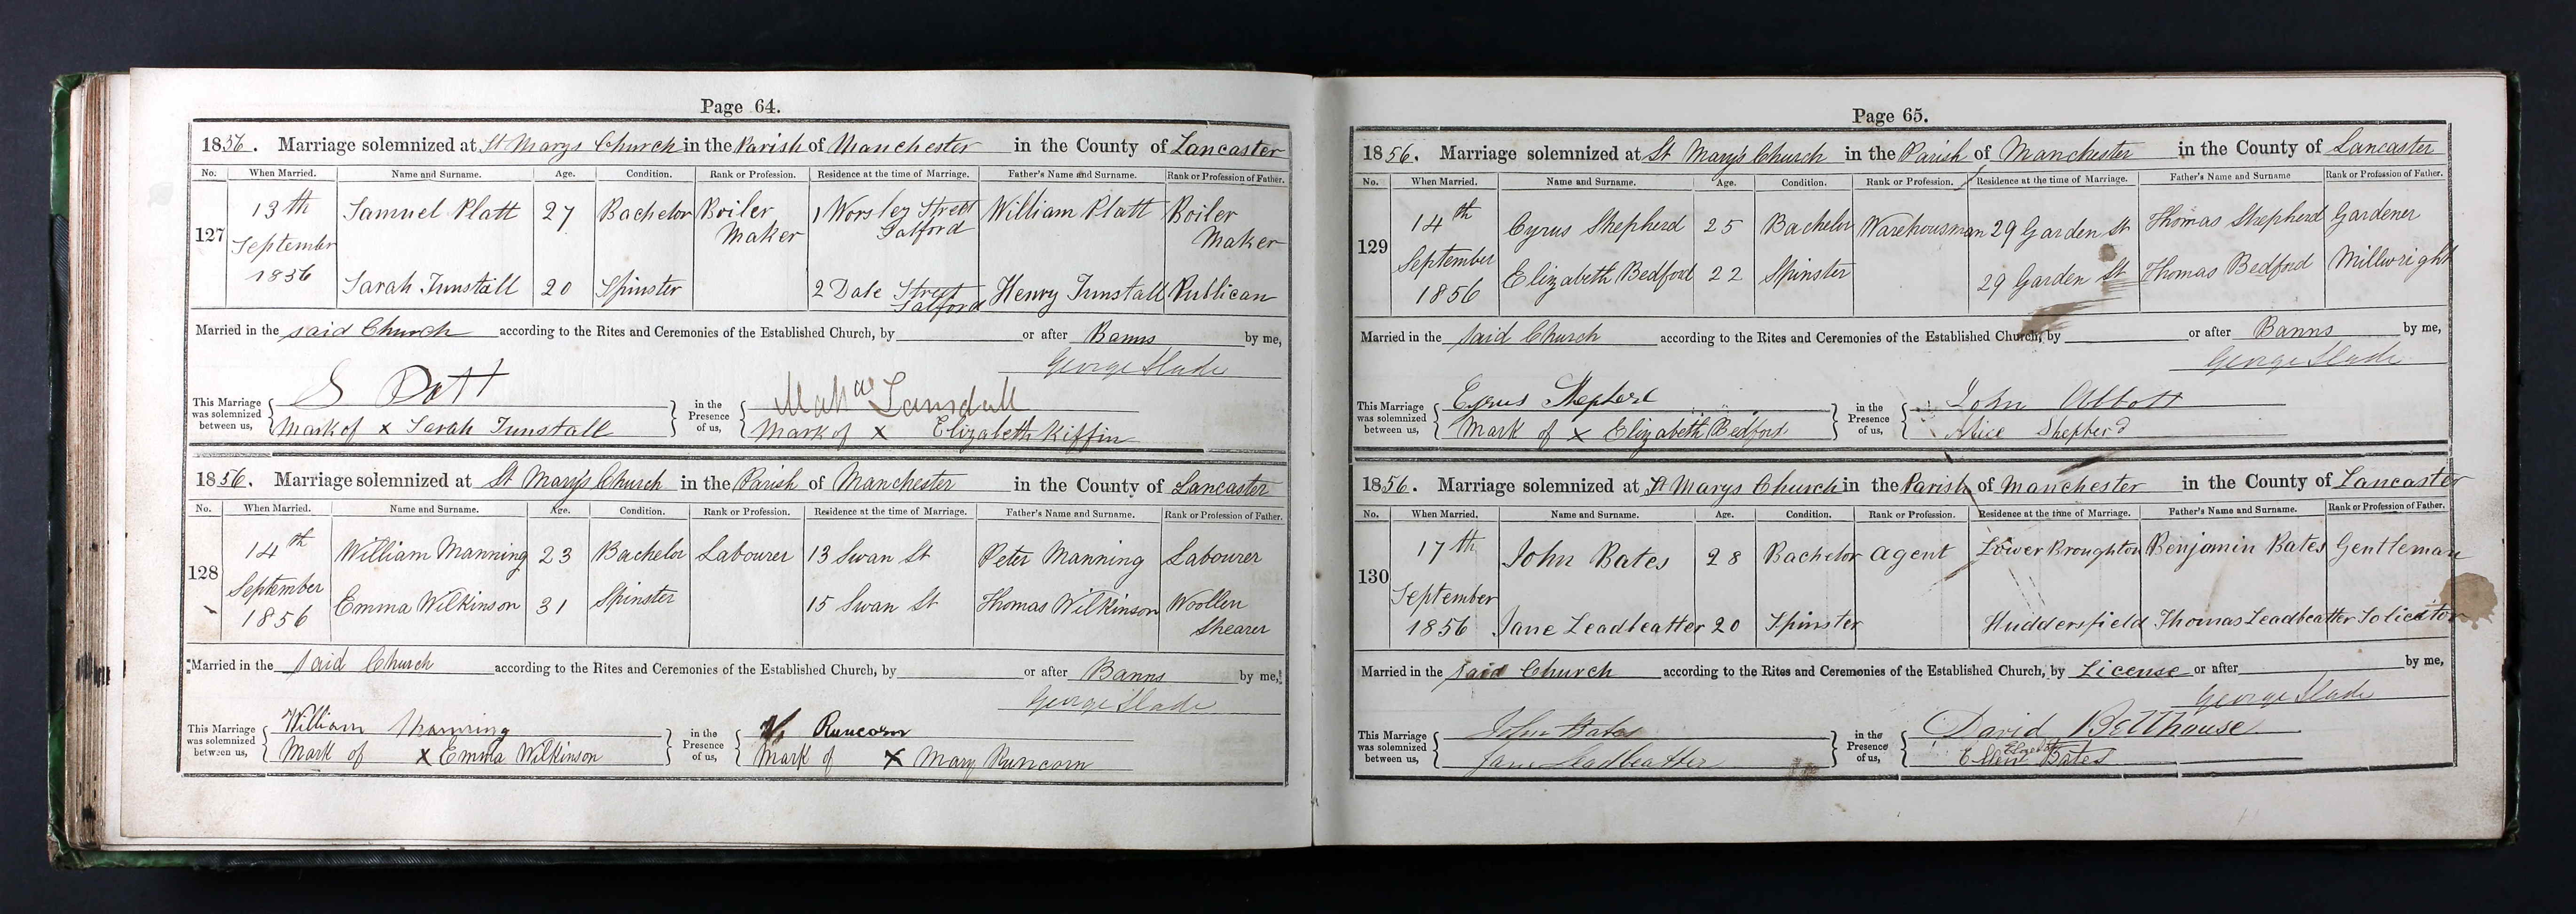 Page 64.
1856. Marriage solemnized at St Marys Church in the Parish of Manchester in the County of Lancaster
No. When Married. Name and Surname. Age. Condition. Rank or Profession. Residence at the time of Marriage. Father's Name and Surname. Rank or Profession of Father.
127 13th September 1856 Samuel Platt 27 Bachelor Boiler Maker 1 Worsley Street Salford William Platt Boiler Maker
Sarah Tunstall 20 Spinster 2 Dale Street Salford Henry Tunstall Publican
Married in the said Church according to the Rites and Ceremonies of the Established Church, by or after Banns by me,
George Slade
This Marriage was solemnized between us, S in the Presence of us,
Mark of x Sarah Tunstall Mark of x Elizabeth Kiffin
1856. Marriage solemnized at St Mary's Church in the Parish of Manchester in the County of Lancaster
No. When Married. Name and Surname. Age. Condition. Rank or Profession. Residence at the time of Marriage. Father's Name and Surname. Rank or Profession of Father.
128 14th September 1856 William Manning 23 Bachelor Labourer 13 Swan St Peter Manning Labourer
Emma Wilkinson 31 Spinster 15 Swan St Thomas Wilkinson Woollen Shearer
Married in the said Church according to the Rites and Ceremonies of the Established Church, by or after Banns by me,
George Slade
This Marriage was solemnized between us, William Manning in the Presence of us, Runcorn
Mark of x Emma Wilkinson Mark of x Mary Runcorn
Page 65.
1856. Marriage solemnized at St Mary's Church in the Parish of Manchester in the County of Lancaster
No. When Married. Name and Surname. Age. Condition. Rank or Profession. Residence at the time of Marriage. Father's Name and Surname Rank or Profession of Father.
129 14th September 1856 Cyrus Shepherd 25 Bachelor Warehousman 29 Garden St Thomas Shepherd Gardener
Elizabeth Bedford 22 Spinster 29 Garden St Thomas Bedford Millwright
Married in the said Church according to the Rites and Ceremonies of the Established Church, by or after Banns by me,
George Slade
This Marriage was solemnized between us, Cyrus in the Presence of us, John Abbott
Mark of x Elizabeth Bedford Alice Shepherd
1856. Marriage solemnized at St Marys Church in the Parish of Manchester in the County of Lancaster
No. When Married. Name and Surname. Age. Condition. Rank or Profession. Residence at the time of Marriage. Father's Name and Surname. Rank or Profession of Father.
130 17th September 1856 John Bates 28 Bachelor Agent Lower Broughton Benjamin Bates Gentleman
Jane Leadbeatter 20 Spinster Huddersfield Thomas Leadbeatter Solicitor
Married in the said Church according to the Rites and Ceremonies of the Established Church, by License or after by me,
George Slade
This Marriage was solemnized between us, John Bates in the Presence of us, David Bellhouse
Jane Leadbeatter Bates